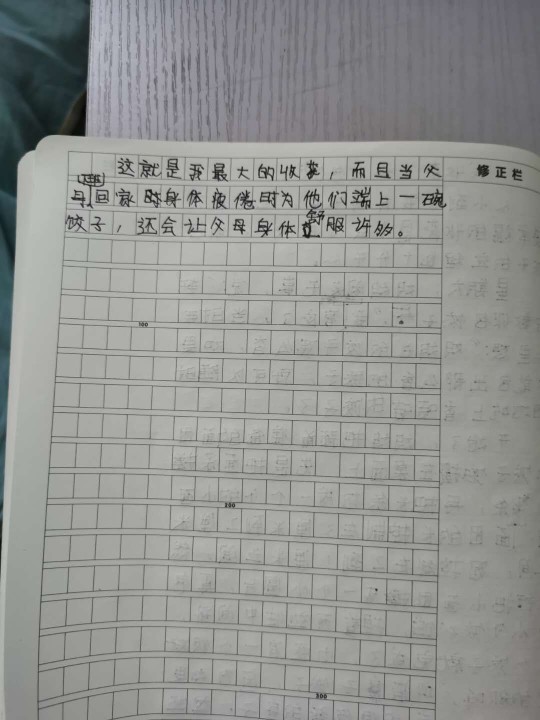 这就是我最大的收获，而且当父 修正栏
母回家时身体疲倦时为他们端上一碗
饺子，还会让父母身体舒服许多。
100
200
300